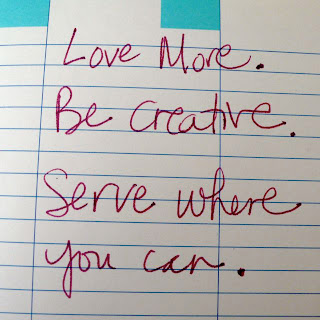 Love More.
Be Creative.
Serve where
you can.